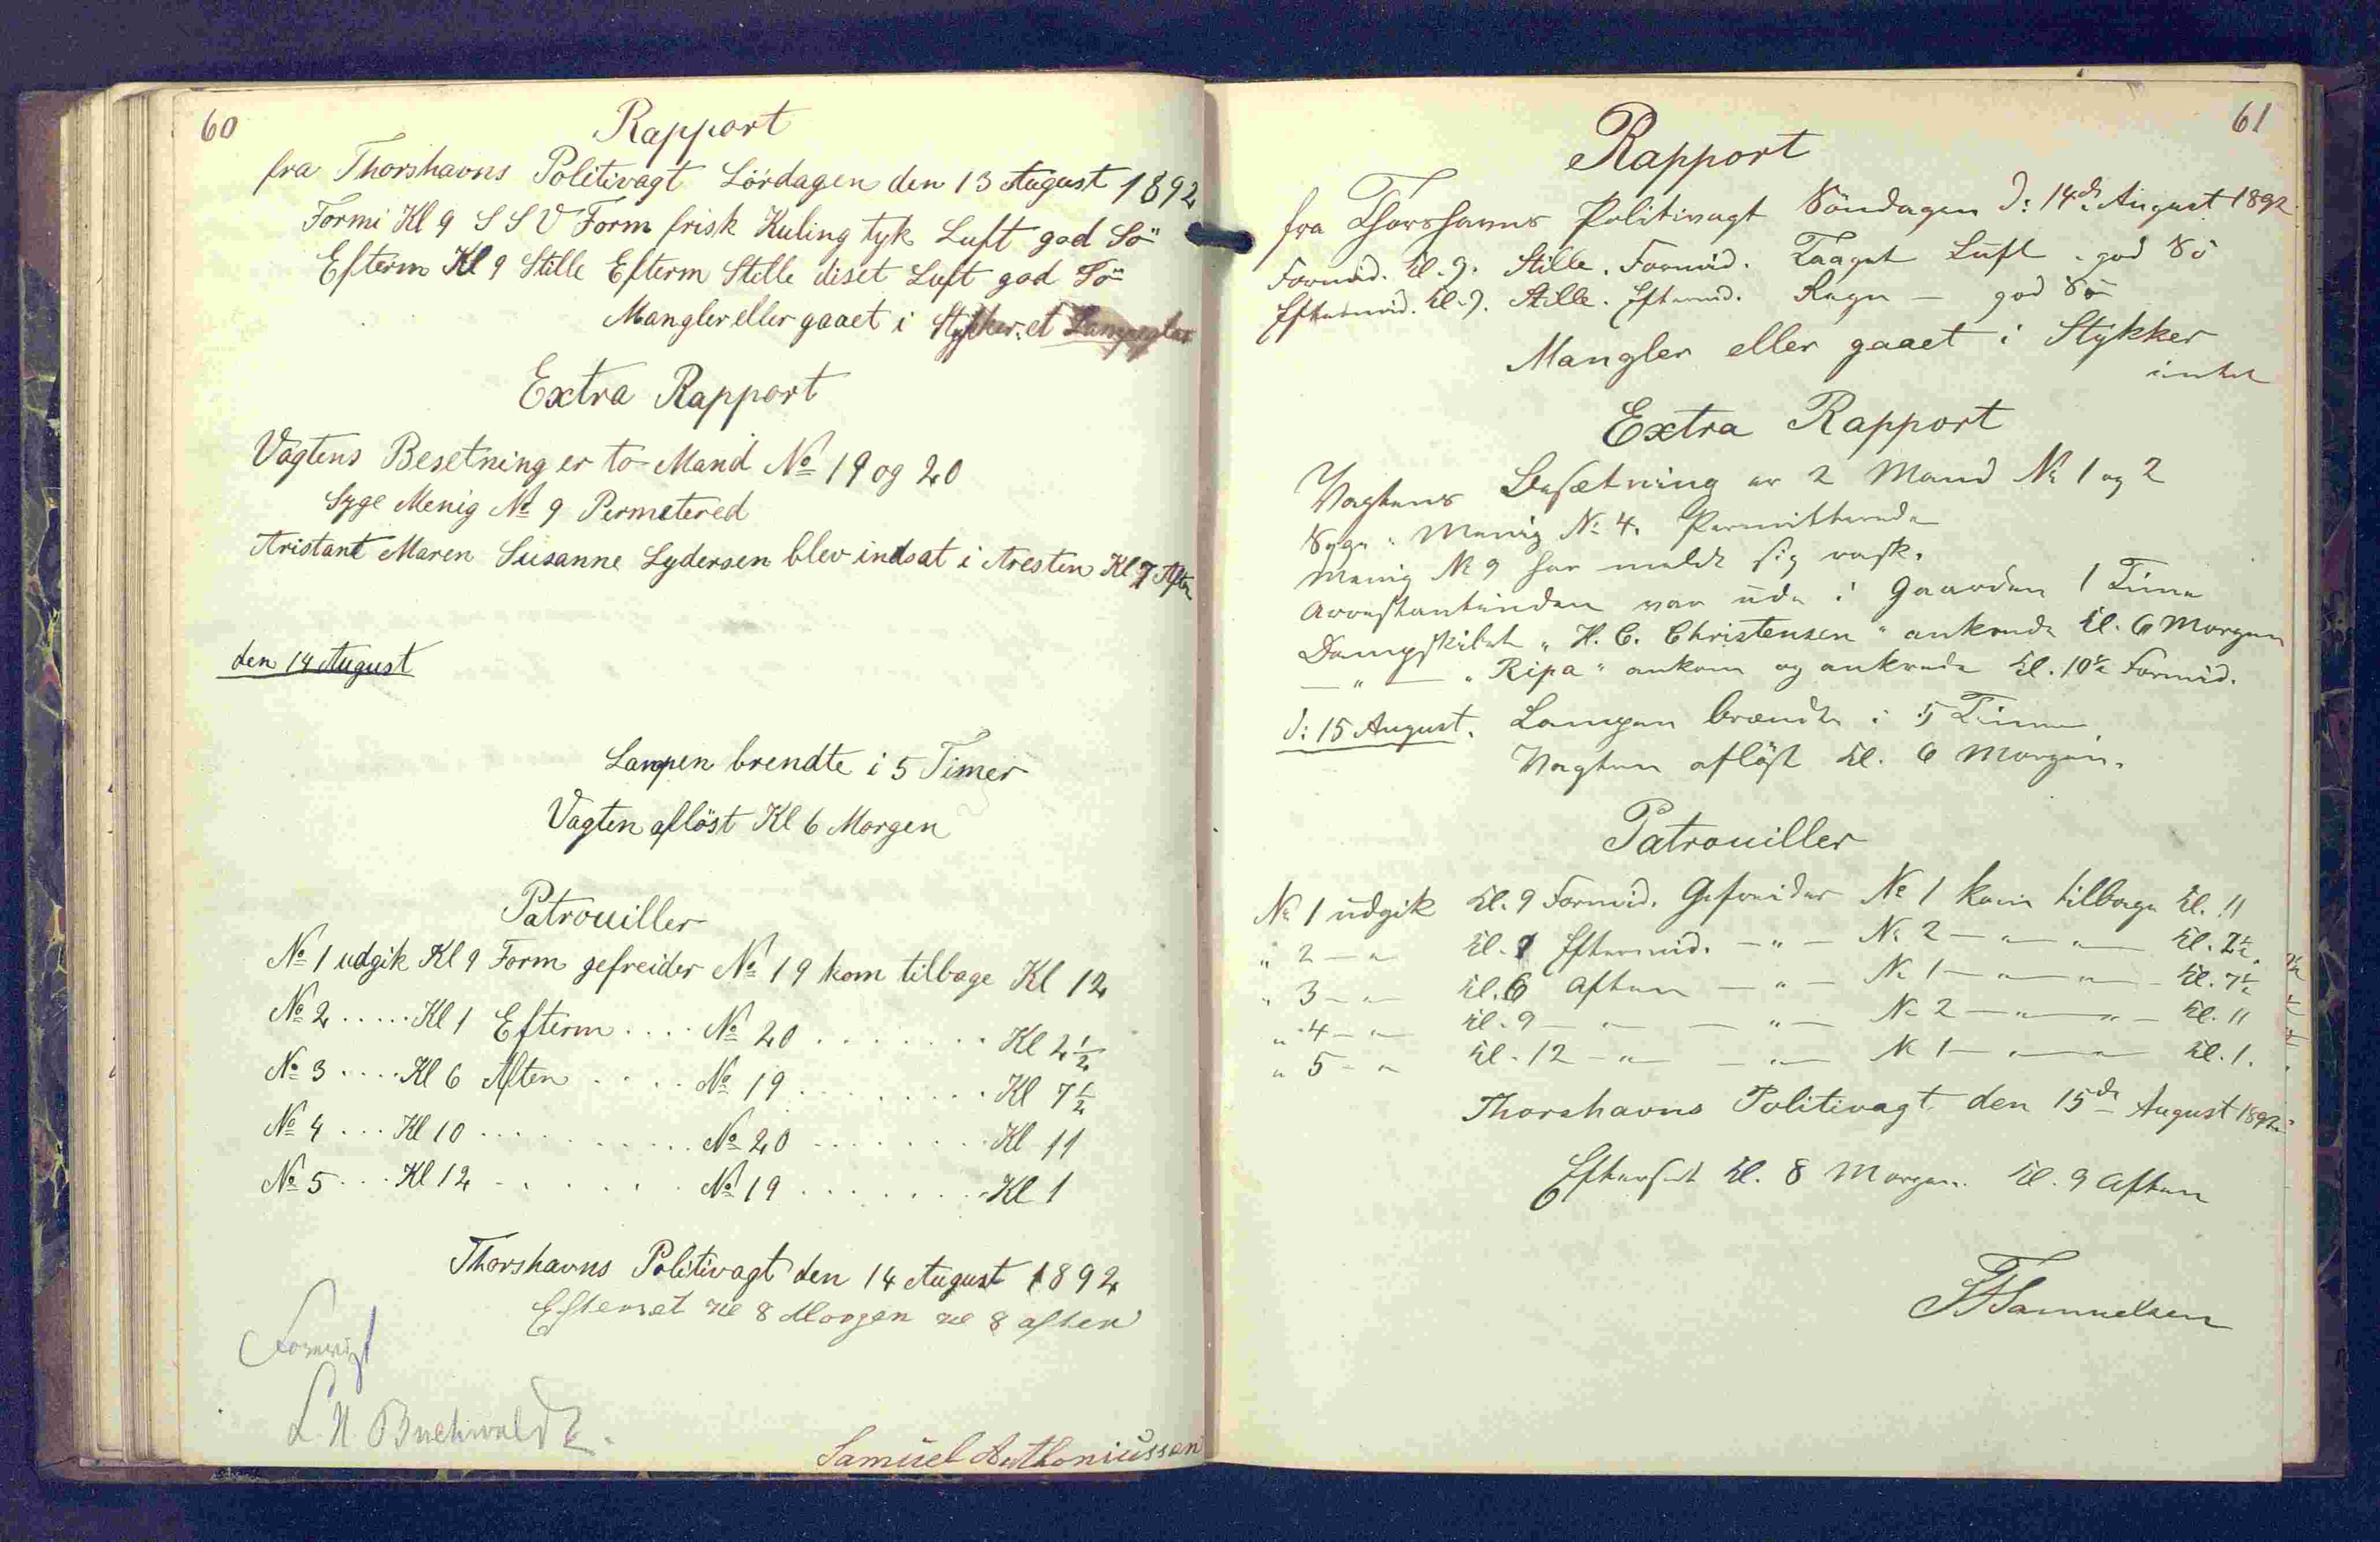 60
Rapport
fra Thorshavns Politivagt Lördagen den 13 August 1892
Formi Kl 9 S S V Form frisk Kuling tyk Luft god Sö
Efterm Kl 9 Stille Efterm Stille diset Luft god Sö
Mangler eller gaaet i Stykker: et Lampeglas
Extra Rapport
Vagtens Besetning er to Mand No 19 og 20
Syge Menig No 9 Permetered
Aristant Maren Susanne Lydersen blev indsat i Aresten Kl 7 Aften
den 14 August
Lampen brendte i 5 Timer
Vagten aflöst Kl 6 Morgen
Patrouiller
No 1 udgik Kl 9 Form gefreider No 19 kom tilbage Kl 12
No 2 ..... Kl 1 Efterm .... No 20 ....... Kl 2 1/2
No 3 .... Kl 6 Aften .... No 19 ........ Kl 7 1/2
No 4 ... Kl 10 ......... No 20 ........ Kl 11
No 5 ... Kl 12 ....... No 19 ....... Kl 1
Thorshavns Politivagt den 14 August 1892
Efterset Kl 8 Morgen Kl 8 aften
Forevist
L. N. Buchwaldt.
Samuel Anthoniussen
61
Rapport
fra Thorshavns Politivagt Söndagen d: 14de August 1892.
Formid. Kl. 9. Stille. Formid. Taaget Luft. god Sö
Eftermid. Kl. 9. Stille. Eftermid. Regn — god Sö
Mangler eller gaaet i Stykker
intet
Extra Rapport
Vagtens Besætning er 2 Mand No 1 og 2
Syge: Menig No 4. Permitterede
Menig No 9 har meldt sig rask.
Arrestantinden var ude i Gaarden 1 Time
Dampskibet "H. C. Christensen" ankrede Kl. 6 Morgen
— " — "Ripa" ankom og ankrede Kl. 10 1/2 Formid.
d: 15 August. Lampen brændte i 5 Timer
Vagten aflöst Kl. 6 Morgen.
Patrouiller
No 1 udgik Kl. 9 Formid. Gefreider No 1 kom tilbage Kl. 11
" 2 — " Kl. 1 Eftermid. — " — No 2 — " — " — Kl. 2 1/2.
" 3 — " — Kl. 6 Aften — " — No 1 — " — " — Kl. 7 1/2
" 4 — " — Kl. 9 — " — — " — No 2 — " — " — Kl. 11
" 5 — " Kl. 12 — " — — " — No 1 — " — " — Kl. 1.
Thorshavns Politivagt den 15de August 1892.
Efterset Kl. 8 Morgen. Kl. 9 Aften
Samuelsen